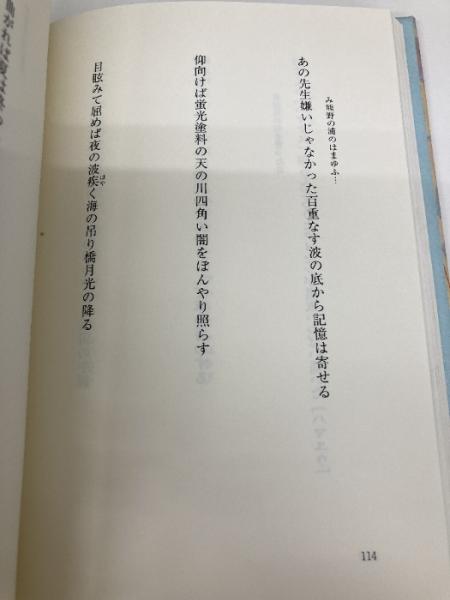 み熊野の浦のはまゆふ…
あの先生嫌いじゃなかった百重なす波の底から記憶は寄せる
仰向けば蛍光塗料の天の川四角い闇をぼんやり照らす
目眩みて屈めば夜の波疾く海の吊り橋月光の降る
はや
114